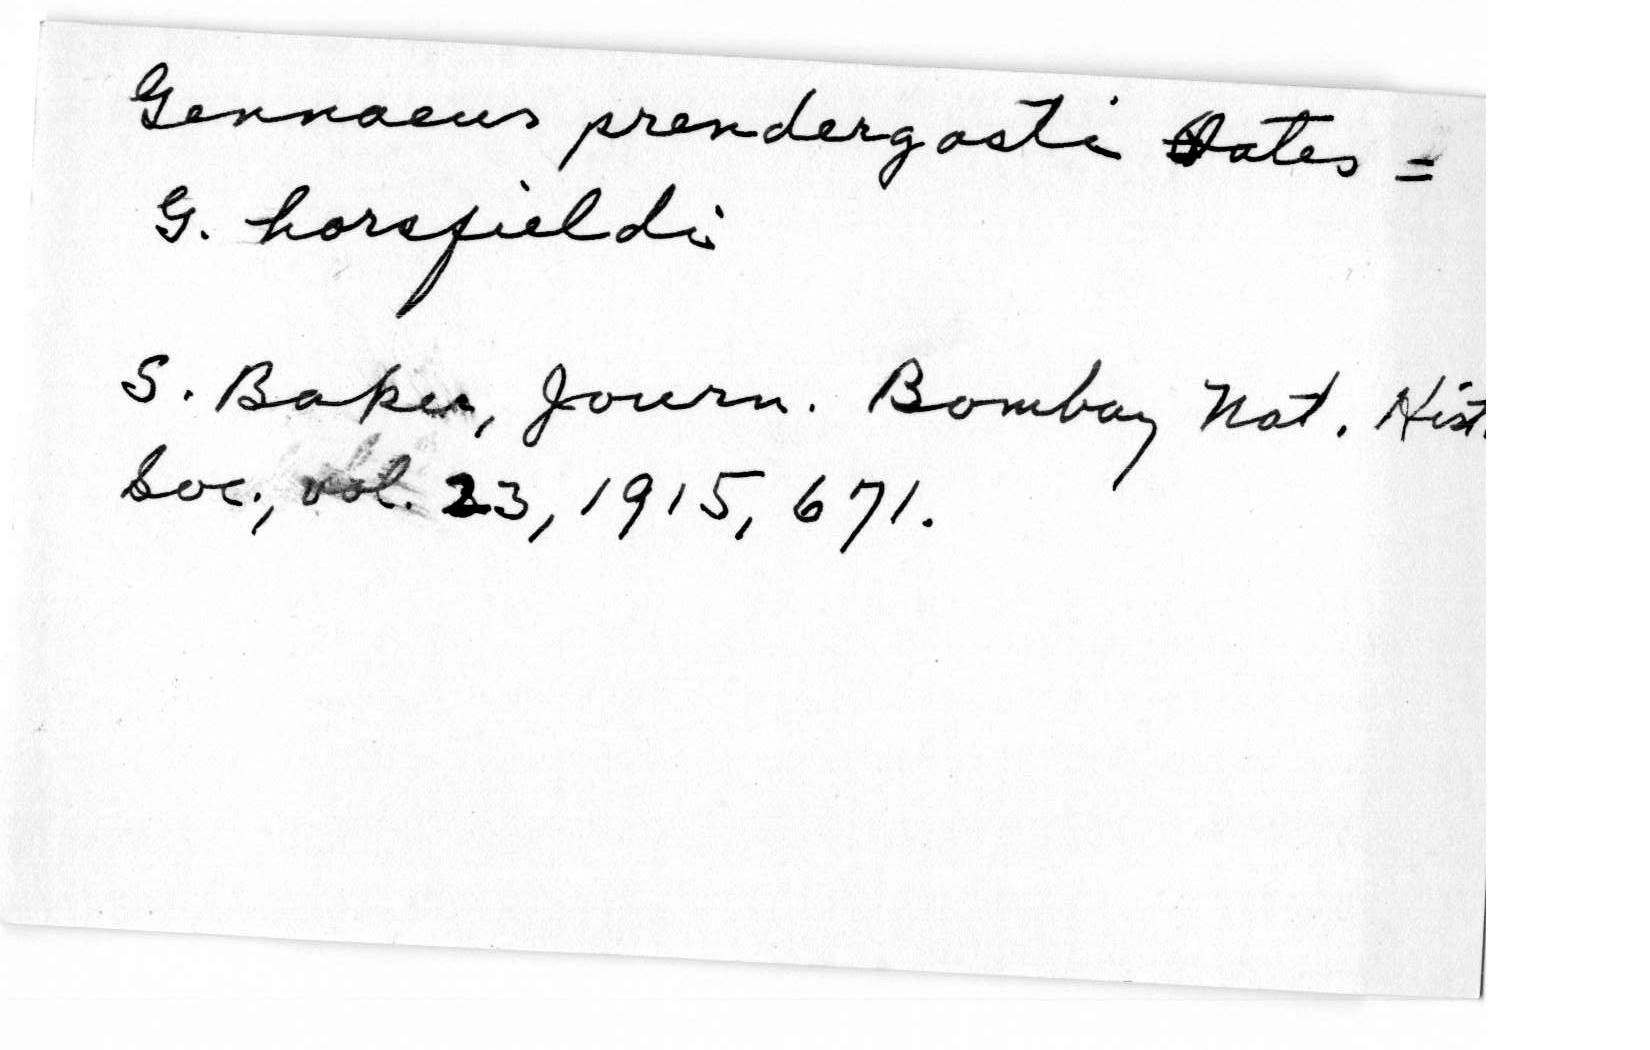 Gennaeus prendergasti Oates =
G. horsfieldi
S. Baker, Journ. Bombay Nat. Hist.
Soc., vol. 23, 1915, 671.